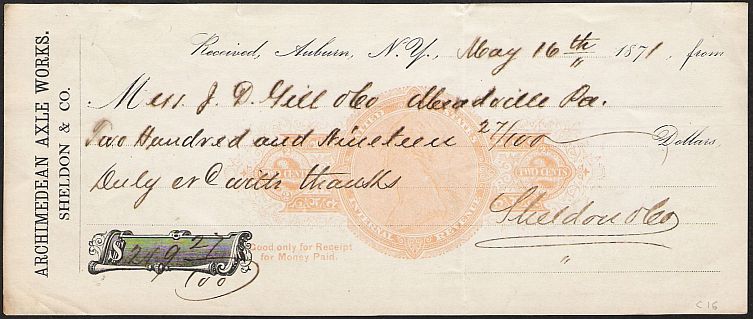 ARCHIMEDEAN AXLE WORKS.
SHELDON & CO.
Received, Auburn, N. Y., May 16th 1871, from
Mess. J. D. Gill & Co Meadville Pa.
Two Hundred and Nineteen 27/100 Dollars,
Duly Cr with thanks
TWO CENTS
TWO CENTS
INTERNAL REVENUE
Sheldon & Co
$ 219 27/100
Good only for Receipt
for Money Paid.
"
C 16